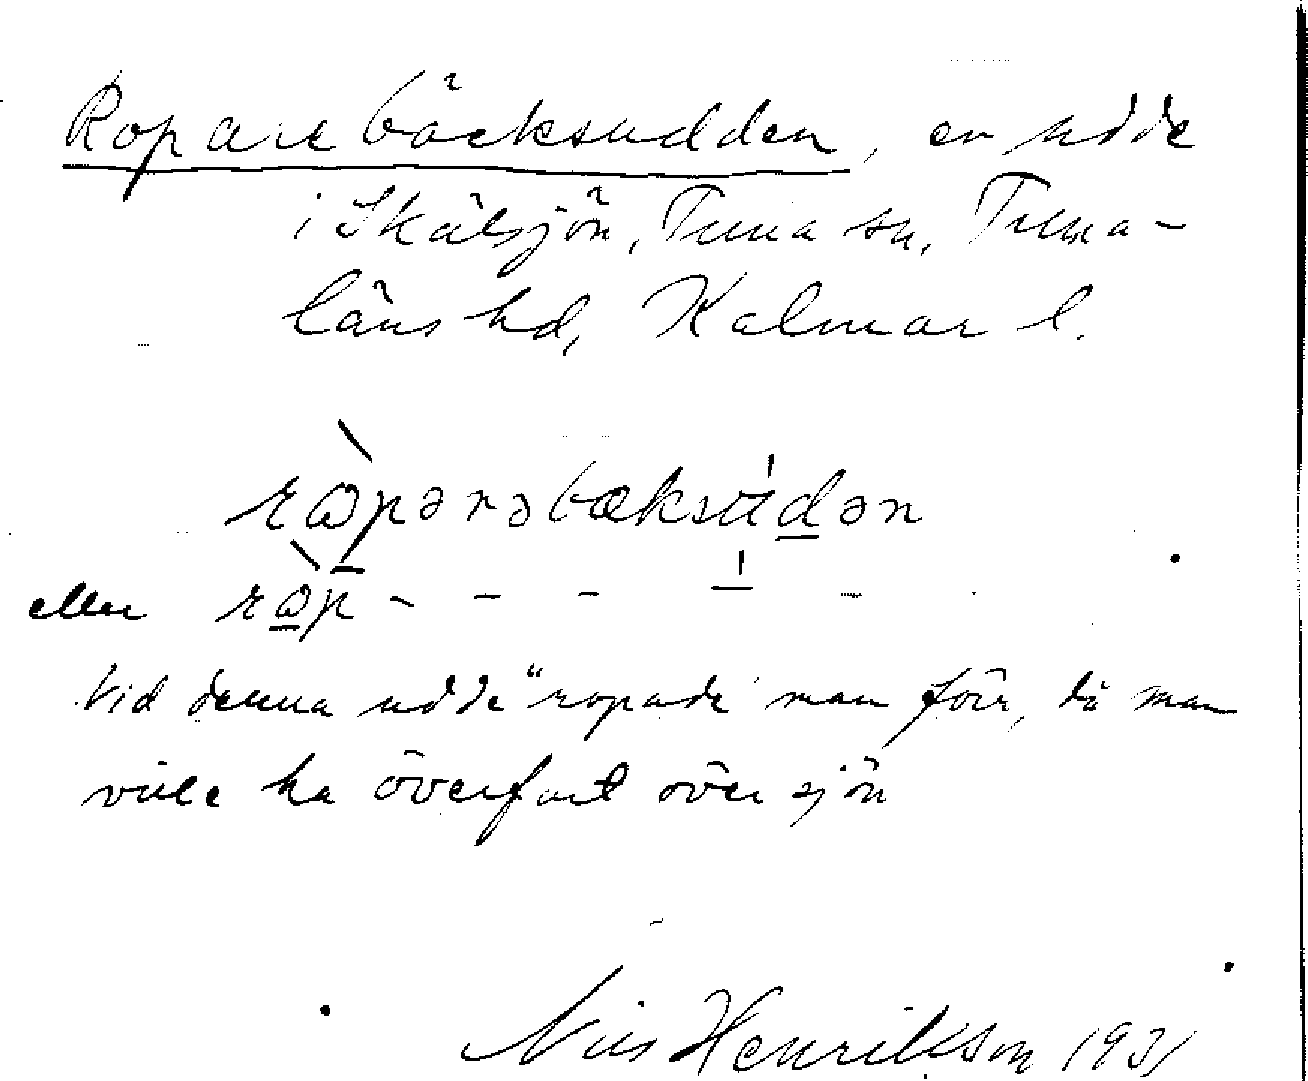 Roparebäcksudden, en udde
i Skälsjön, Tuna sn, Tuna-
läns hd, Kalmar l.
rɷ̀pərəbæksu̍dən
eller rɷ̀p - - - -́ -
Vid denna udde "ropade" man förr, då man
ville ha överfart över sjön
Nils Henrikson 1931